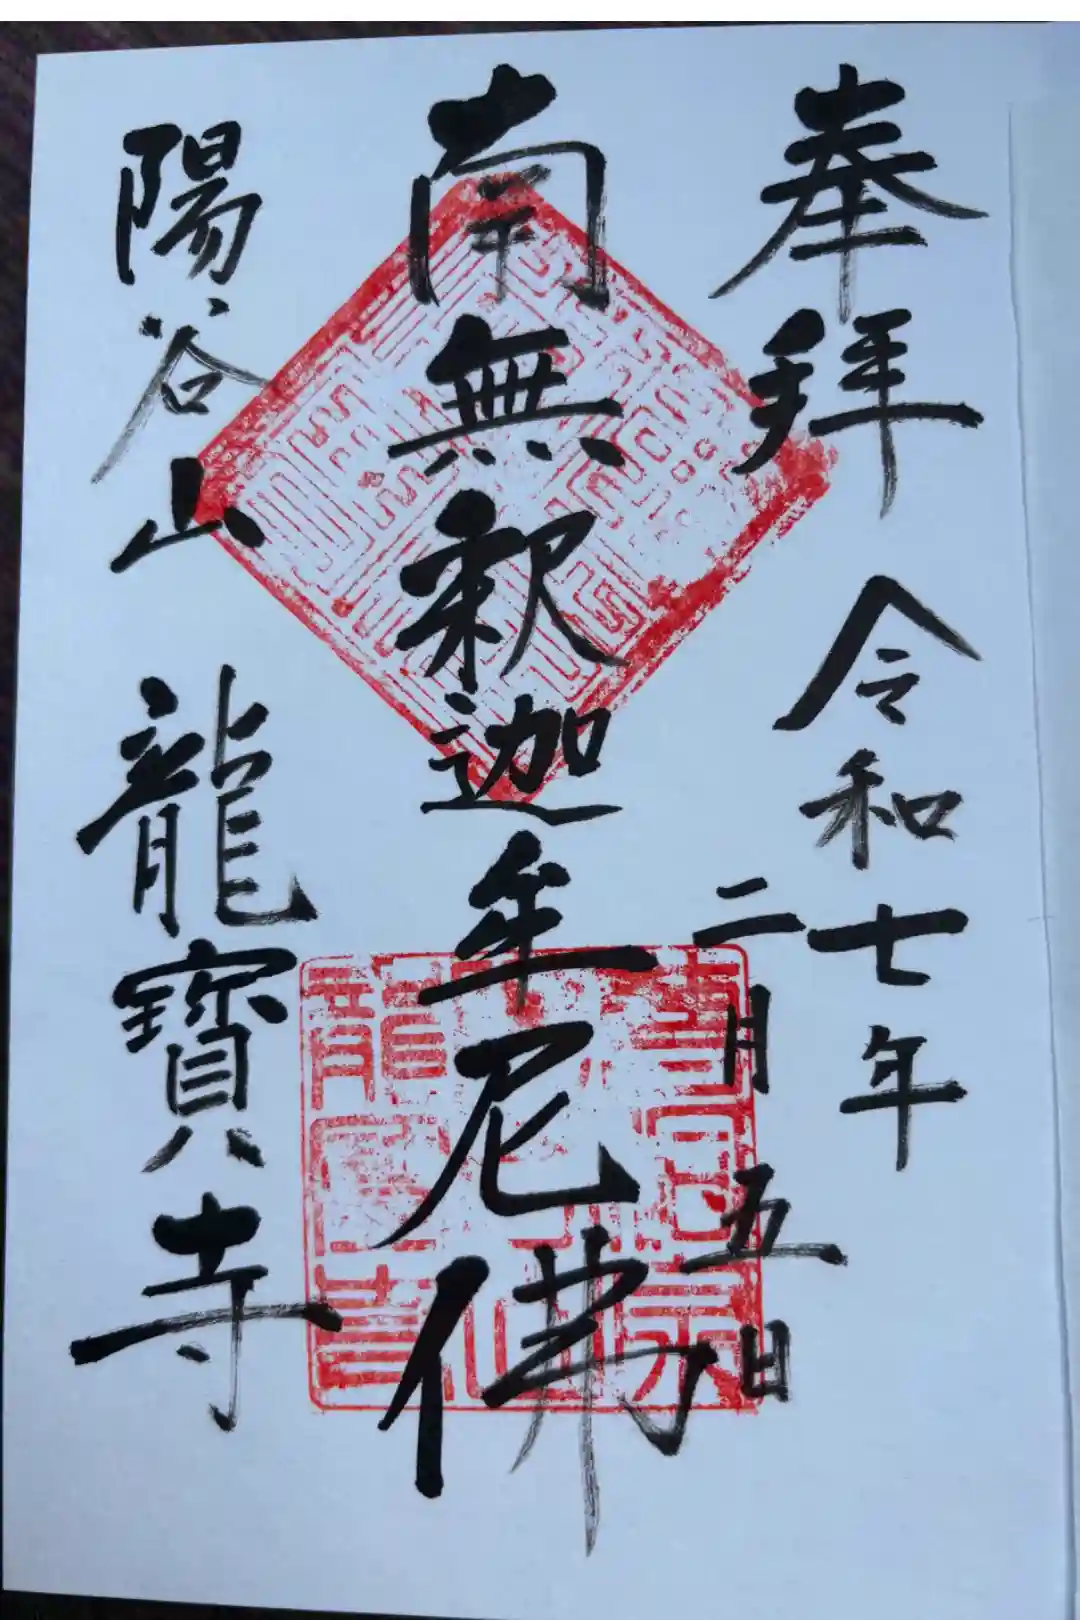 奉拝 令和七年
二月五日
南無釈迦牟尼佛
陽谷山 龍寶寺